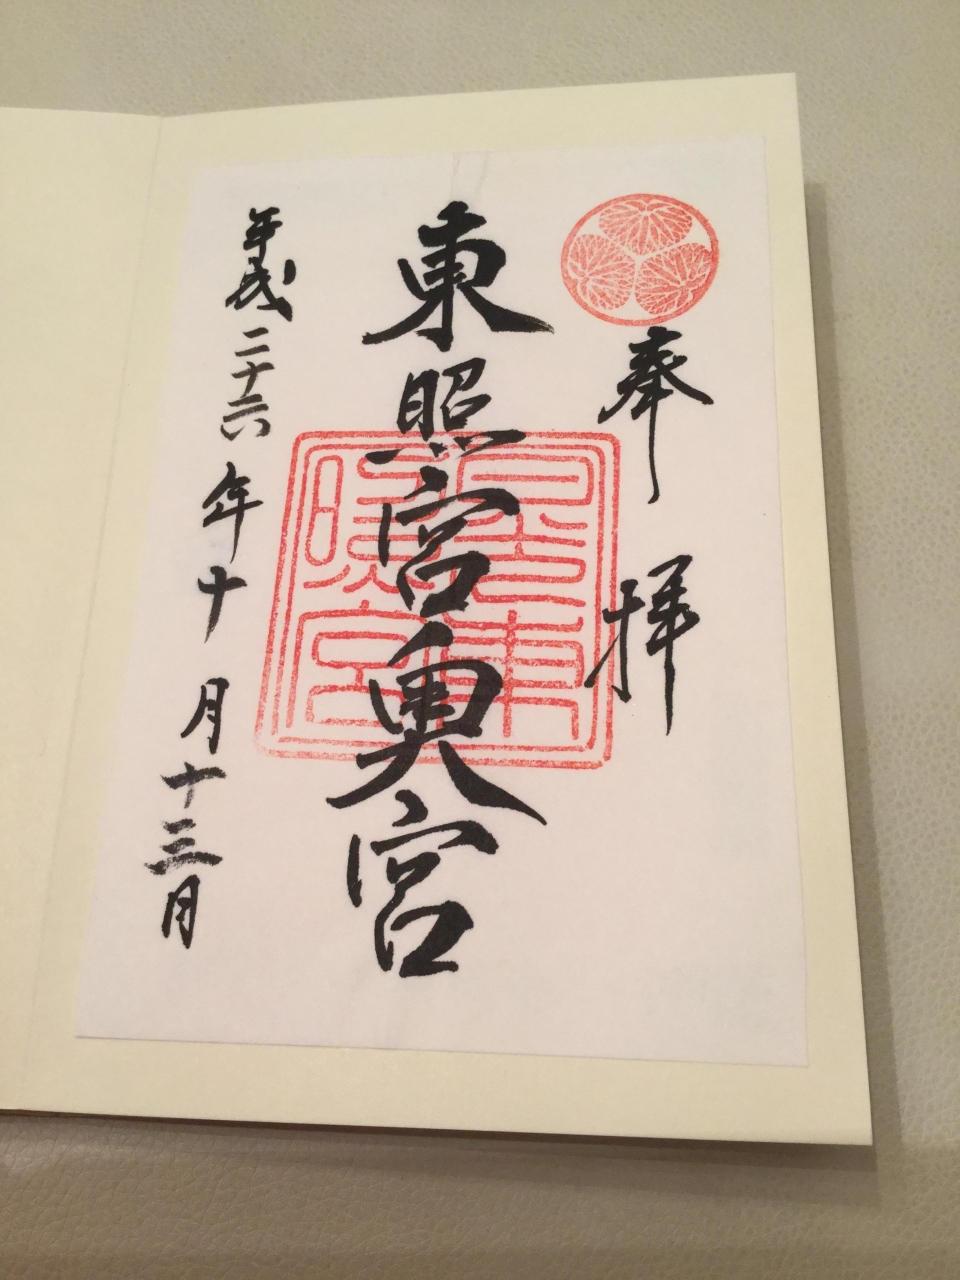 奉拝
東照宮奥宮
日光東
照宮
平成二十六年十月十三日